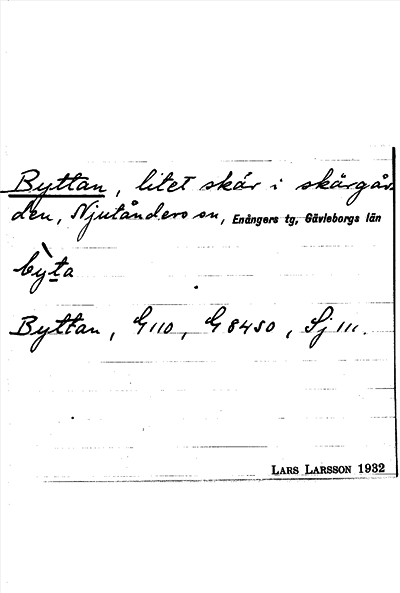 Byttan, litet skär i skärgår-
den, Njutånders sn, Enångers tg, Gävleborgs län
bỳta
Byttan, G110, G8450, Sj 111.
LARS LARSSON 1932